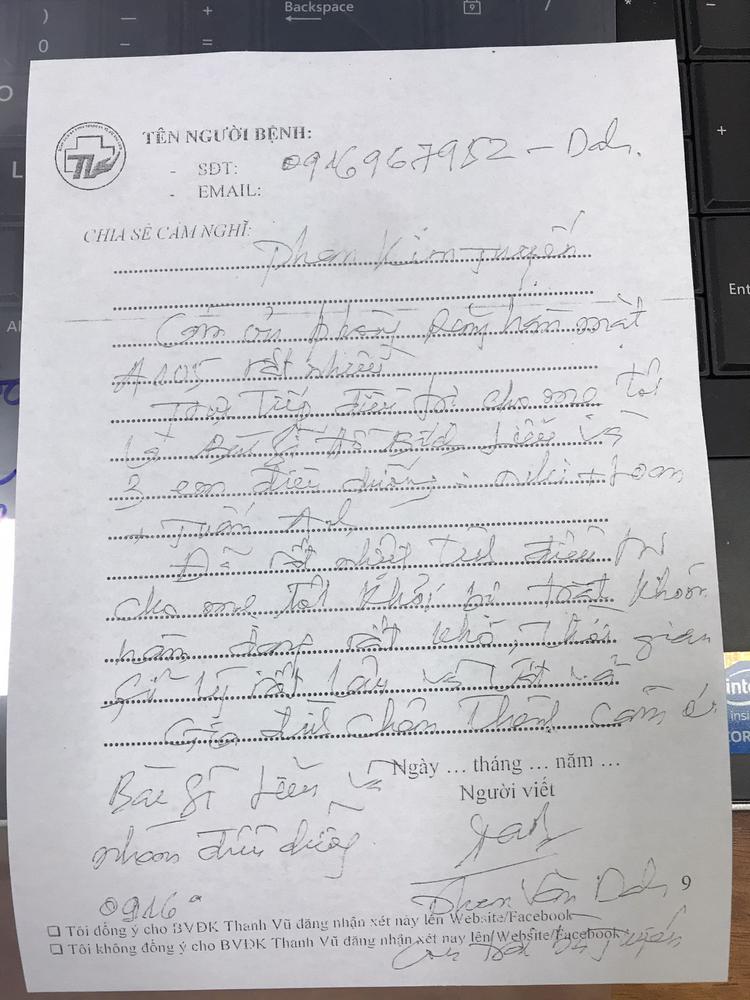 Backspace
TÊN NGƯỜI BỆNH:
- SĐT: 0916967952 - Danh.
- EMAIL:
CHIA SẺ CẢM NGHĨ:
Phan Kim Tuyến
Cám ơn phòng Răng hàm mặt
A105 rất nhiều
Trực tiếp điều trị cho mẹ tôi
là Bác sĩ Hồ Bích Liễu và
3 em điều dưỡng: Nhi + Loan
+ Tuấn Anh
Đã rất nhiệt tình điều trị
cho mẹ tôi khỏi bị trật khớp
hàm đang rất khổ, thời gian
xử lý rất lâu và vất vả
Gia đình chân thành cám ơn
Bác sĩ Liễu và
nhóm điều dưỡng
Ngày ... tháng ... năm ...
Người viết
Phan Văn Danh
9
0916
☐ Tôi đồng ý cho BVĐK Thanh Vũ đăng nhận xét này lên Website/Facebook
☐ Tôi không đồng ý cho BVĐK Thanh Vũ đăng nhận xét này lên Website/Facebook
Con trai bà Tuyến